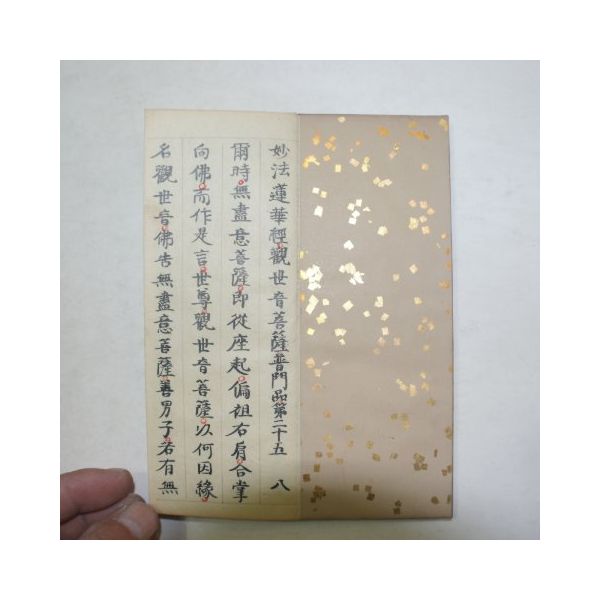 妙法蓮華經觀世音菩薩普門品第二十五 八
爾時無盡意菩薩即從座起偏袒右肩合掌
向佛而作是言世尊觀世音菩薩以何因緣
名觀世音佛告無盡意菩薩善男子若有無